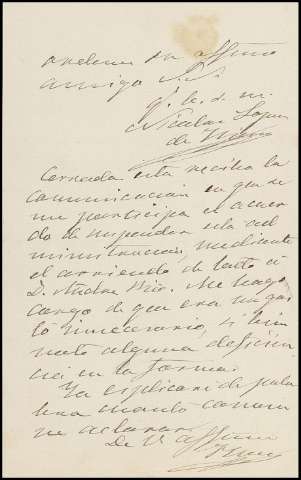 ordenes su affmo
amigo S.S.
q. b. s. m.
Nicolas
de
Cerrada esta recibo la
comunicacion en que se
me participa el acuer
do de suspender esta ad
ministracion, mediante
el arriendo de todo á
D. Andres Me hago
cargo de que era un gas
to innecesario, si bien
noto alguna deficien
cia en la forma.
Ya esplicaré de pala
bra cuanto convin
ne aclarar.
De V. affmo